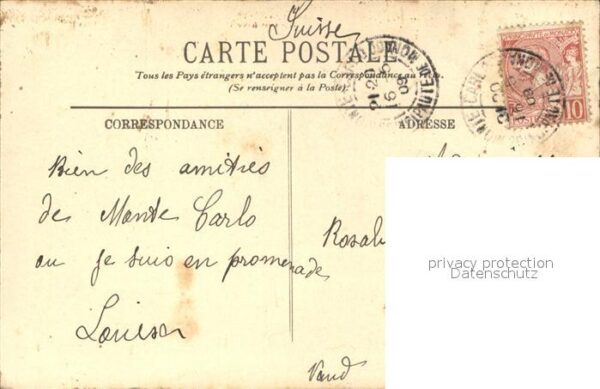 Suisse
CARTE POSTALE
Tous les Pays étrangers n'acceptent pas la Correspondance au
(Se renseigner à la Poste).
CORRESPONDANCE
ADRESSE
Bien des amitiés
de Monte Carlo
ou je suis en promenade
Rosa
Vaud
privacy protection
Datenschutz
10